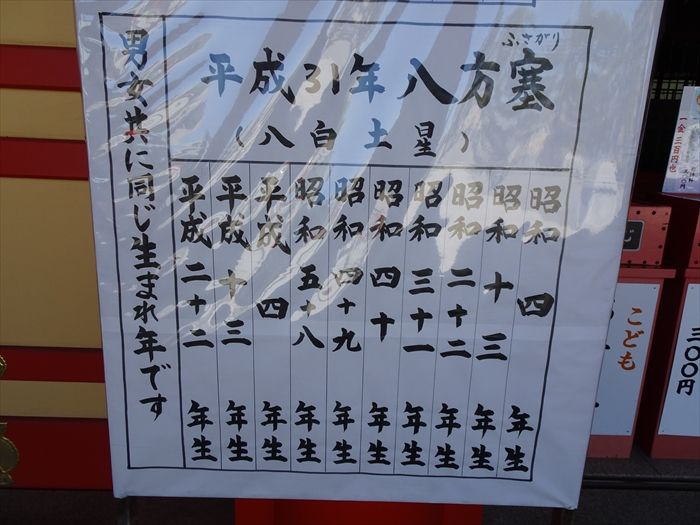 ふさがり
平成31年八方塞
(八白土星)
昭和四年生
昭和十三年生
昭和二十二年生
昭和三十一年生
昭和四十年生
昭和四十九年生
昭和五十八年生
平成四年生
平成十三年生
平成二十二年生
男女共に同じ生まれ年です
一金三百円也
三〇〇円
こども